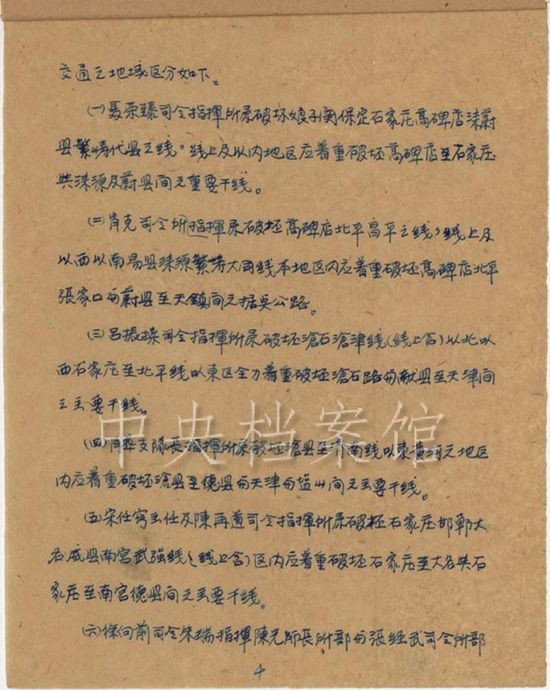 交通之地域区分如下。
(一)聂荣臻司令指揮所属破坏娘子関保定石家庄高碑店涞蔚
县繁峙代县之线。线上及以内地区应着重破坏高碑店至石家庄
与涞源及蔚县间之重要干线。
(二)肖克司令所指揮属破坏高碑店北平昌平之线,线上及
以西以南易县涞源繁峙大同线本地区内应着重破坏高碑店北平
張家口与蔚县至天鎮間之据点公路。
(三)吕振操司令指揮所属破坏滄石滄津线(线上含)以北以
西石家庄至北平线以東区全力着重破坏滄石路与献县至天津间
之主要干线。
(四)支隊長指揮所属破坏滄县至济南线以東黄河之地区
内应着重破坏滄县至德县与天津与盐山间之主要干线。
(五)宋任穷主任及陳再道司令指揮所属破坏石家庄邯鄲大
名威县南宫武强线(线上含)区内应着重破坏石家庄至大名与石
家庄至南宫德县间之主要干线。
(六)徐向前司令朱瑞指揮陳光師長所部与張经武司令所部
4
中央档案馆